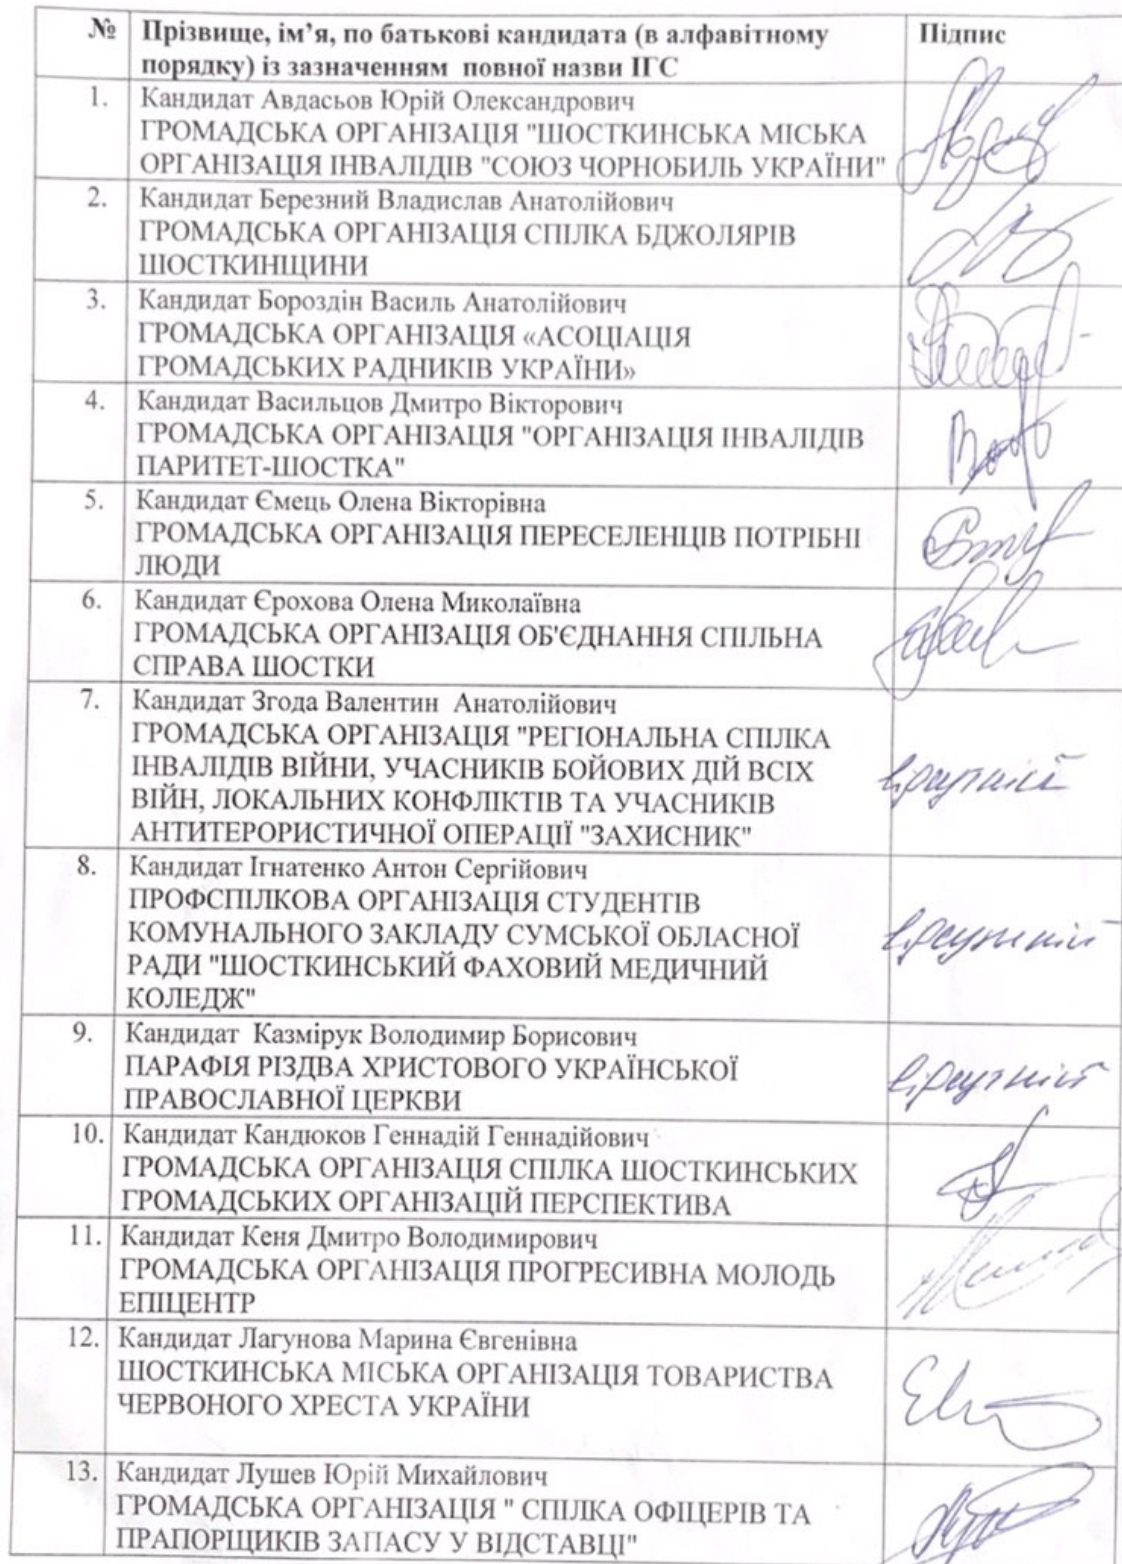 № Прізвище, ім’я, по батькові кандидата (в алфавітному Підпис
порядку) із зазначенням повної назви ІГС
1. Кандидат Авдасьов Юрій Олександрович
ГРОМАДСЬКА ОРГАНІЗАЦІЯ "ШОСТКИНСЬКА МІСЬКА
ОРГАНІЗАЦІЯ ІНВАЛІДІВ "СОЮЗ ЧОРНОБИЛЬ УКРАЇНИ"
2. Кандидат Березний Владислав Анатолійович
ГРОМАДСЬКА ОРГАНІЗАЦІЯ СПІЛКА БДЖОЛЯРІВ
ШОСТКИНЩИНИ
3. Кандидат Бороздін Василь Анатолійович
ГРОМАДСЬКА ОРГАНІЗАЦІЯ «АСОЦІАЦІЯ
ГРОМАДСЬКИХ РАДНИКІВ УКРАЇНИ»
4. Кандидат Васильцов Дмитро Вікторович
ГРОМАДСЬКА ОРГАНІЗАЦІЯ "ОРГАНІЗАЦІЯ ІНВАЛІДІВ
ПАРИТЕТ-ШОСТКА"
5. Кандидат Ємець Олена Вікторівна
ГРОМАДСЬКА ОРГАНІЗАЦІЯ ПЕРЕСЕЛЕНЦІВ ПОТРІБНІ
ЛЮДИ
6. Кандидат Єрохова Олена Миколаївна
ГРОМАДСЬКА ОРГАНІЗАЦІЯ ОБ'ЄДНАННЯ СПІЛЬНА
СПРАВА ШОСТКИ
7. Кандидат Згода Валентин Анатолійович
ГРОМАДСЬКА ОРГАНІЗАЦІЯ "РЕГІОНАЛЬНА СПІЛКА
ІНВАЛІДІВ ВІЙНИ, УЧАСНИКІВ БОЙОВИХ ДІЙ ВСІХ
ВІЙН, ЛОКАЛЬНИХ КОНФЛІКТІВ ТА УЧАСНИКІВ
АНТИТЕРОРИСТИЧНОЇ ОПЕРАЦІЇ "ЗАХИСНИК"
відсутній
8. Кандидат Ігнатенко Антон Сергійович
ПРОФСПІЛКОВА ОРГАНІЗАЦІЯ СТУДЕНТІВ
КОМУНАЛЬНОГО ЗАКЛАДУ СУМСЬКОЇ ОБЛАСНОЇ
РАДИ "ШОСТКИНСЬКИЙ ФАХОВИЙ МЕДИЧНИЙ
КОЛЕДЖ"
відсутній
9. Кандидат Казмірук Володимир Борисович
ПАРАФІЯ РІЗДВА ХРИСТОВОГО УКРАЇНСЬКОЇ
ПРАВОСЛАВНОЇ ЦЕРКВИ
відсутній
10. Кандидат Кандюков Геннадій Геннадійович
ГРОМАДСЬКА ОРГАНІЗАЦІЯ СПІЛКА ШОСТКИНСЬКИХ
ГРОМАДСЬКИХ ОРГАНІЗАЦІЙ ПЕРСПЕКТИВА
11. Кандидат Кеня Дмитро Володимирович
ГРОМАДСЬКА ОРГАНІЗАЦІЯ ПРОГРЕСИВНА МОЛОДЬ
ЕПІЦЕНТР
12. Кандидат Лагунова Марина Євгенівна
ШОСТКИНСЬКА МІСЬКА ОРГАНІЗАЦІЯ ТОВАРИСТВА
ЧЕРВОНОГО ХРЕСТА УКРАЇНИ
13. Кандидат Лушев Юрій Михайлович
ГРОМАДСЬКА ОРГАНІЗАЦІЯ " СПІЛКА ОФІЦЕРІВ ТА
ПРАПОРЩИКІВ ЗАПАСУ У ВІДСТАВЦІ"